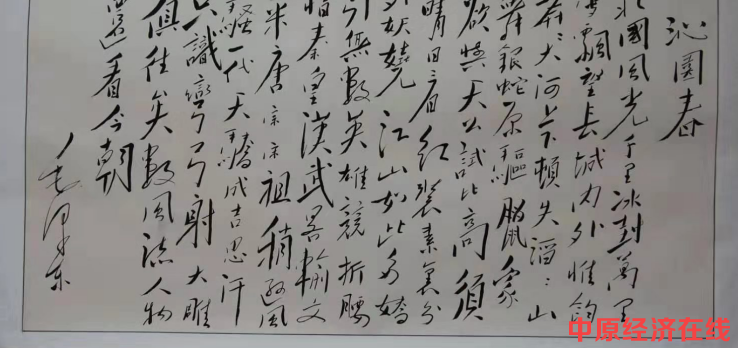 沁園春
北國風光千里冰封萬里
雪飄望長城内外惟餘
莽々大河上下頓失滔々山
舞銀蛇原驅臘象
欲與天公試比高須
晴日看紅裝素裹分
外妖嬈江山如此多嬌
引無數英雄競折腰
惜秦皇漢武略輸文
采唐宗宋祖稍遜風
騷一代天驕成吉思汗
只識彎弓射大雕
俱往矣數風流人物
還看今朝
毛澤東
中原经济在线